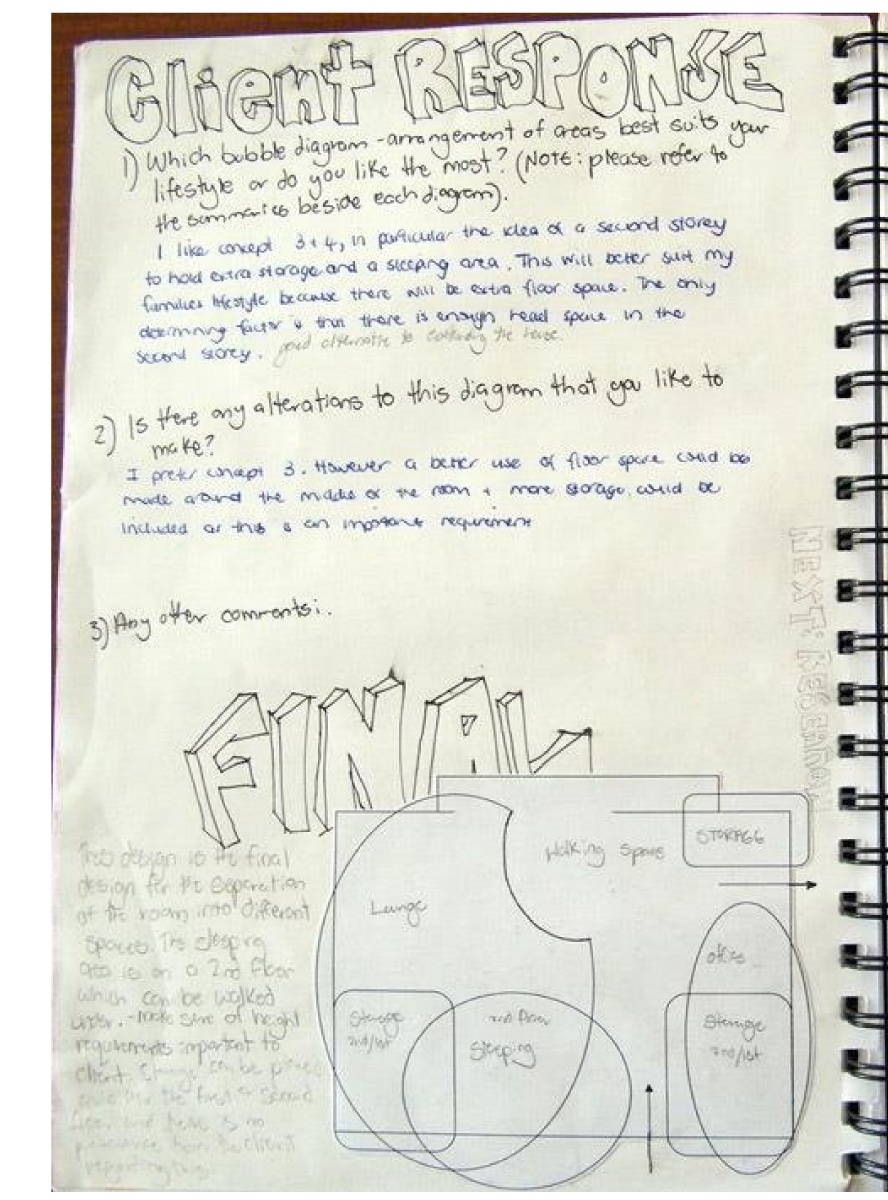 Client RESPONSE
1) Which bubble diagram - arrangement of areas best suits your
lifestyle or do you like the most? (NOTE: please refer to
the summaries beside each diagram).
I like concept 3 + 4, in particular the idea of a second storey
to hold extra storage and a sleeping area. This will better suit my
families lifestyle because there will be extra floor space. The only
determining factor is that there is enough head space in the
second storey. good alternative to extending the house.
2) Is there any alterations to this diagram that you like to
make?
I prefer concept 3. However a better use of floor space could be
made around the middle of the room + more storage could be
included as this is an important requirement
3) Any other comments:.
NEXT: RESEARCH
FINAL
This design is the final
design for the separation
of the room into different
spaces. The sleeping
area is on a 2nd floor
which can be walked
under. - make sure of height
requirements important to
client. Storage can be placed
the first + second
floor and there is no
from the client
regarding this.
STORAGE
Walking Space
Lounge
office
Storage
2nd/1st
2nd floor
Sleeping
Storage
2nd/1st